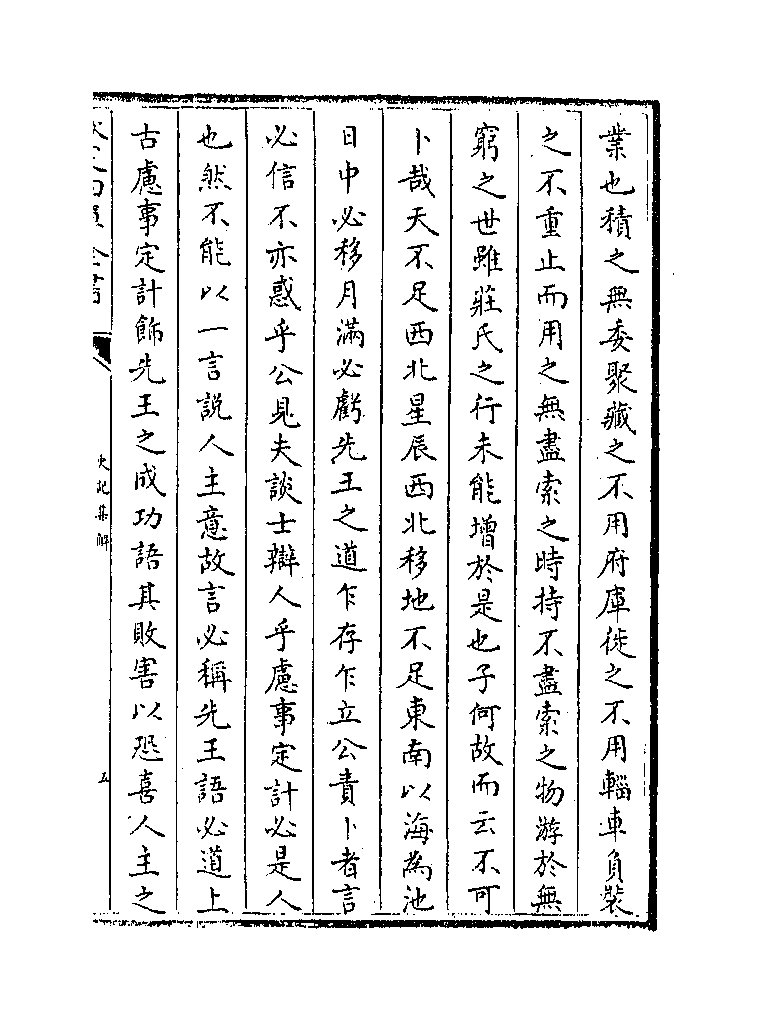 業也積之無委聚藏之不用府庫徙之不用輜車負裝
之不重止而用之無盡索之時持不盡索之物游於無
窮之世雖莊氏之行未能增於是也子何故而云不可
卜哉天不足西北星辰西北移地不足東南以海為池
日中必移月滿必虧先王之道乍存乍亡公責卜者言
必信不亦惑乎公見夫談士辯人乎慮事定計必是人
也然不能以一言説人主意故言必稱先王語必道上
古慮事定計飾先王之成功語其敗害以恐喜人主之
史記集解
五